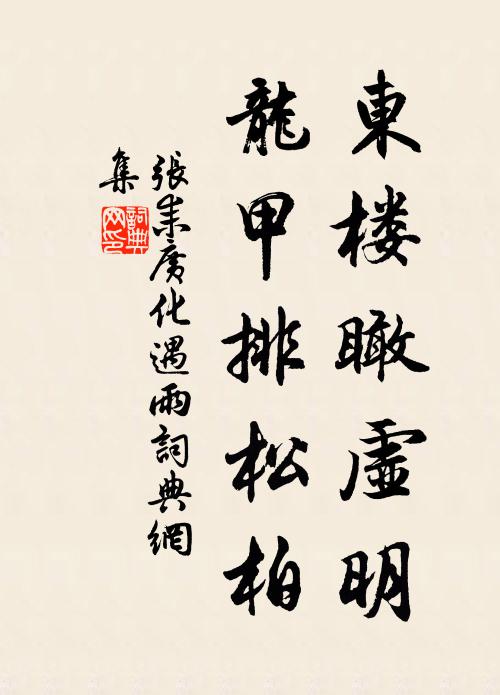 東楼瞰虛明
龍甲排松柏
張耒廣化遇雨詞典網
集
詞典
网印